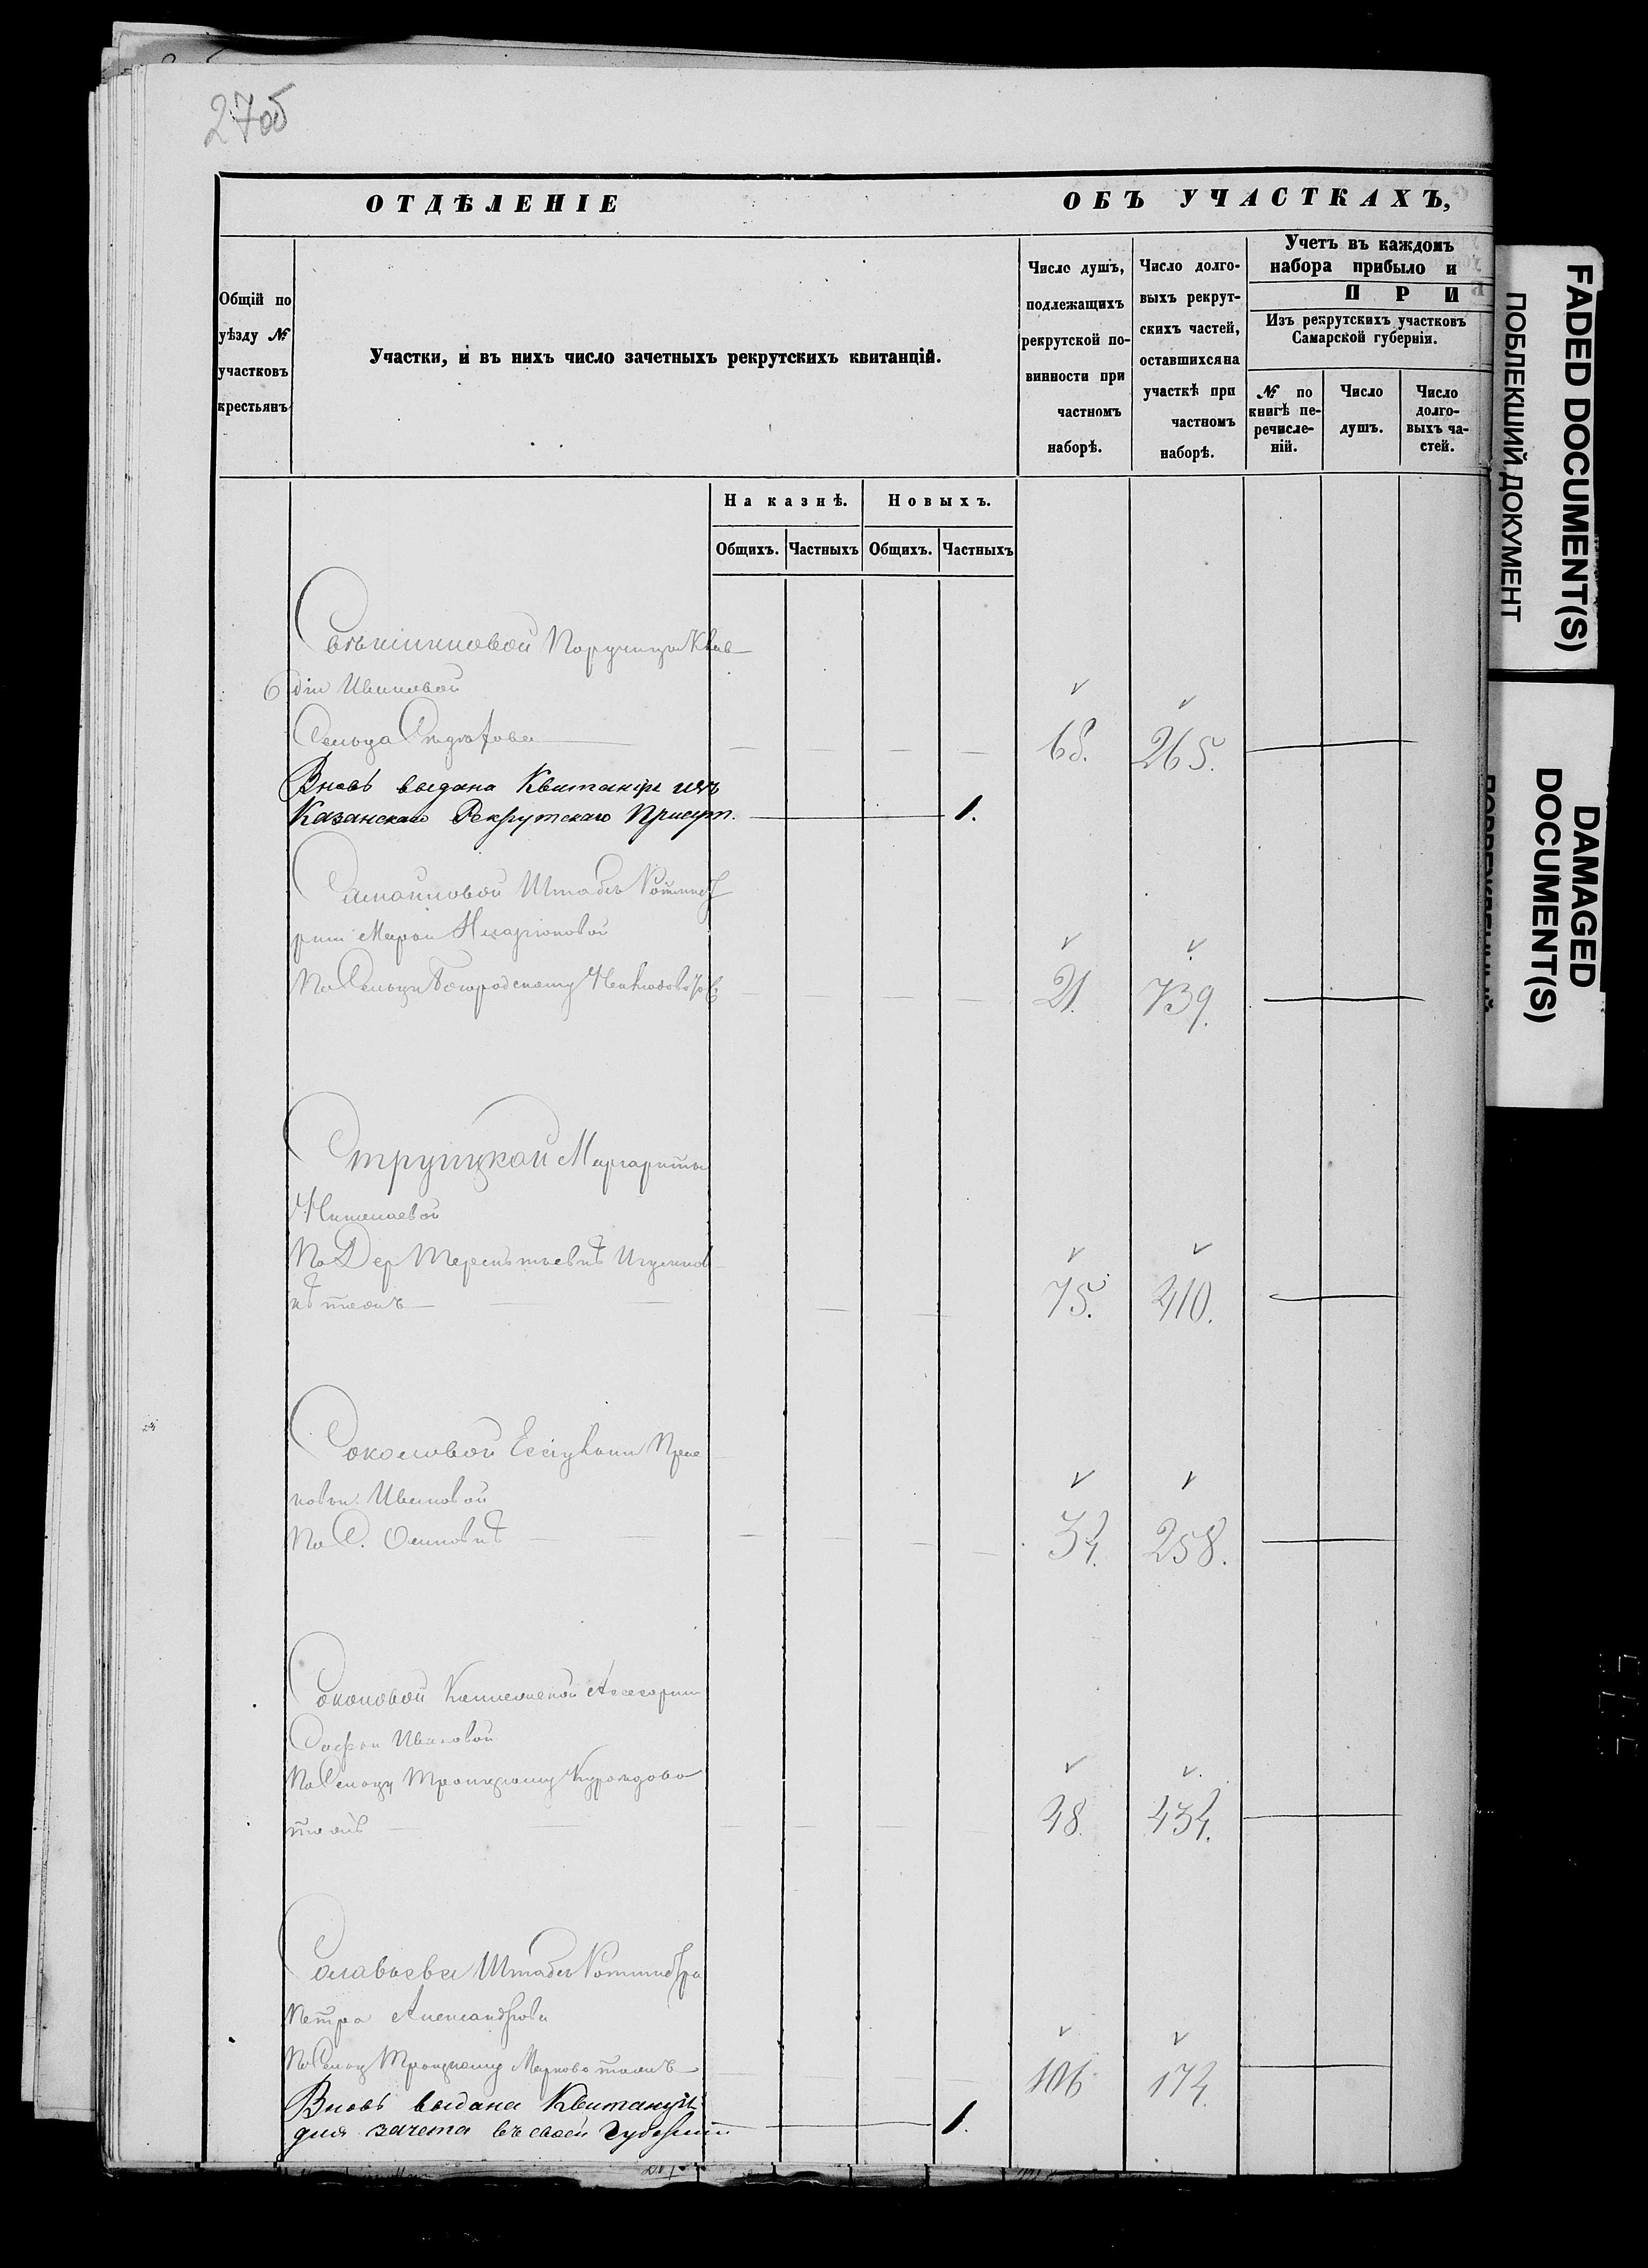 27об
ОТДѢЛЕНІЕ ОБЪ УЧАСТКАХЪ,
Общій по уѣзду № участковъ крестьянъ
Участки, и въ нихъ число зачетныхъ рекрутскихъ квитанцій.
Число душъ, подлежащихъ рекрутской повинности при частномъ наборѣ.
Число долговыхъ рекрутскихъ частей, оставшихся на участкѣ при частномъ наборѣ.
Учетъ въ каждомъ
набора прибыло и
ПРИ
Изъ рекрутскихъ участковъ
Самарской губерніи.
№ по книгѣ перечисленій.
Число душъ.
Число долговыхъ частей.
На казнѣ. Новыхъ.
Общихъ. Частныхъ Общихъ. Частныхъ
Поручицы Клав
діи Ивановой
Сельца
265.
Вновь выдана Квитанція изъ
Казанскаго Рекрутскаго Присут. 1.
Самойловой Штабсъ Ротмист
рши Марьи Иларіоновой
По Сельцу Богородскому 21. 739.
Струицкой Маргариты
Николаевой
По Дер Терентьевкѣ
тожъ 75. 410.
Соколовой
Ивановой
По С. Осиновкѣ 34. 258.
Соколовой Коллежской Ассесорши
Софьи Ивановой
По Сельцу Троицкому Куроѣдово
тожъ 48. 434.
Соловьева Штабсъ Ротмистра
Петра Александрова
По Сельцу Троицкому Марково тожъ 106 174.
Вновь выдана Квитанція
для зачета въ своей Губерніи 1.
FADED DOCUMENT(S)
ПОБЛЕКШИЙ ДОКУМЕНТ
DAMAGED
DOCUMENT(S)